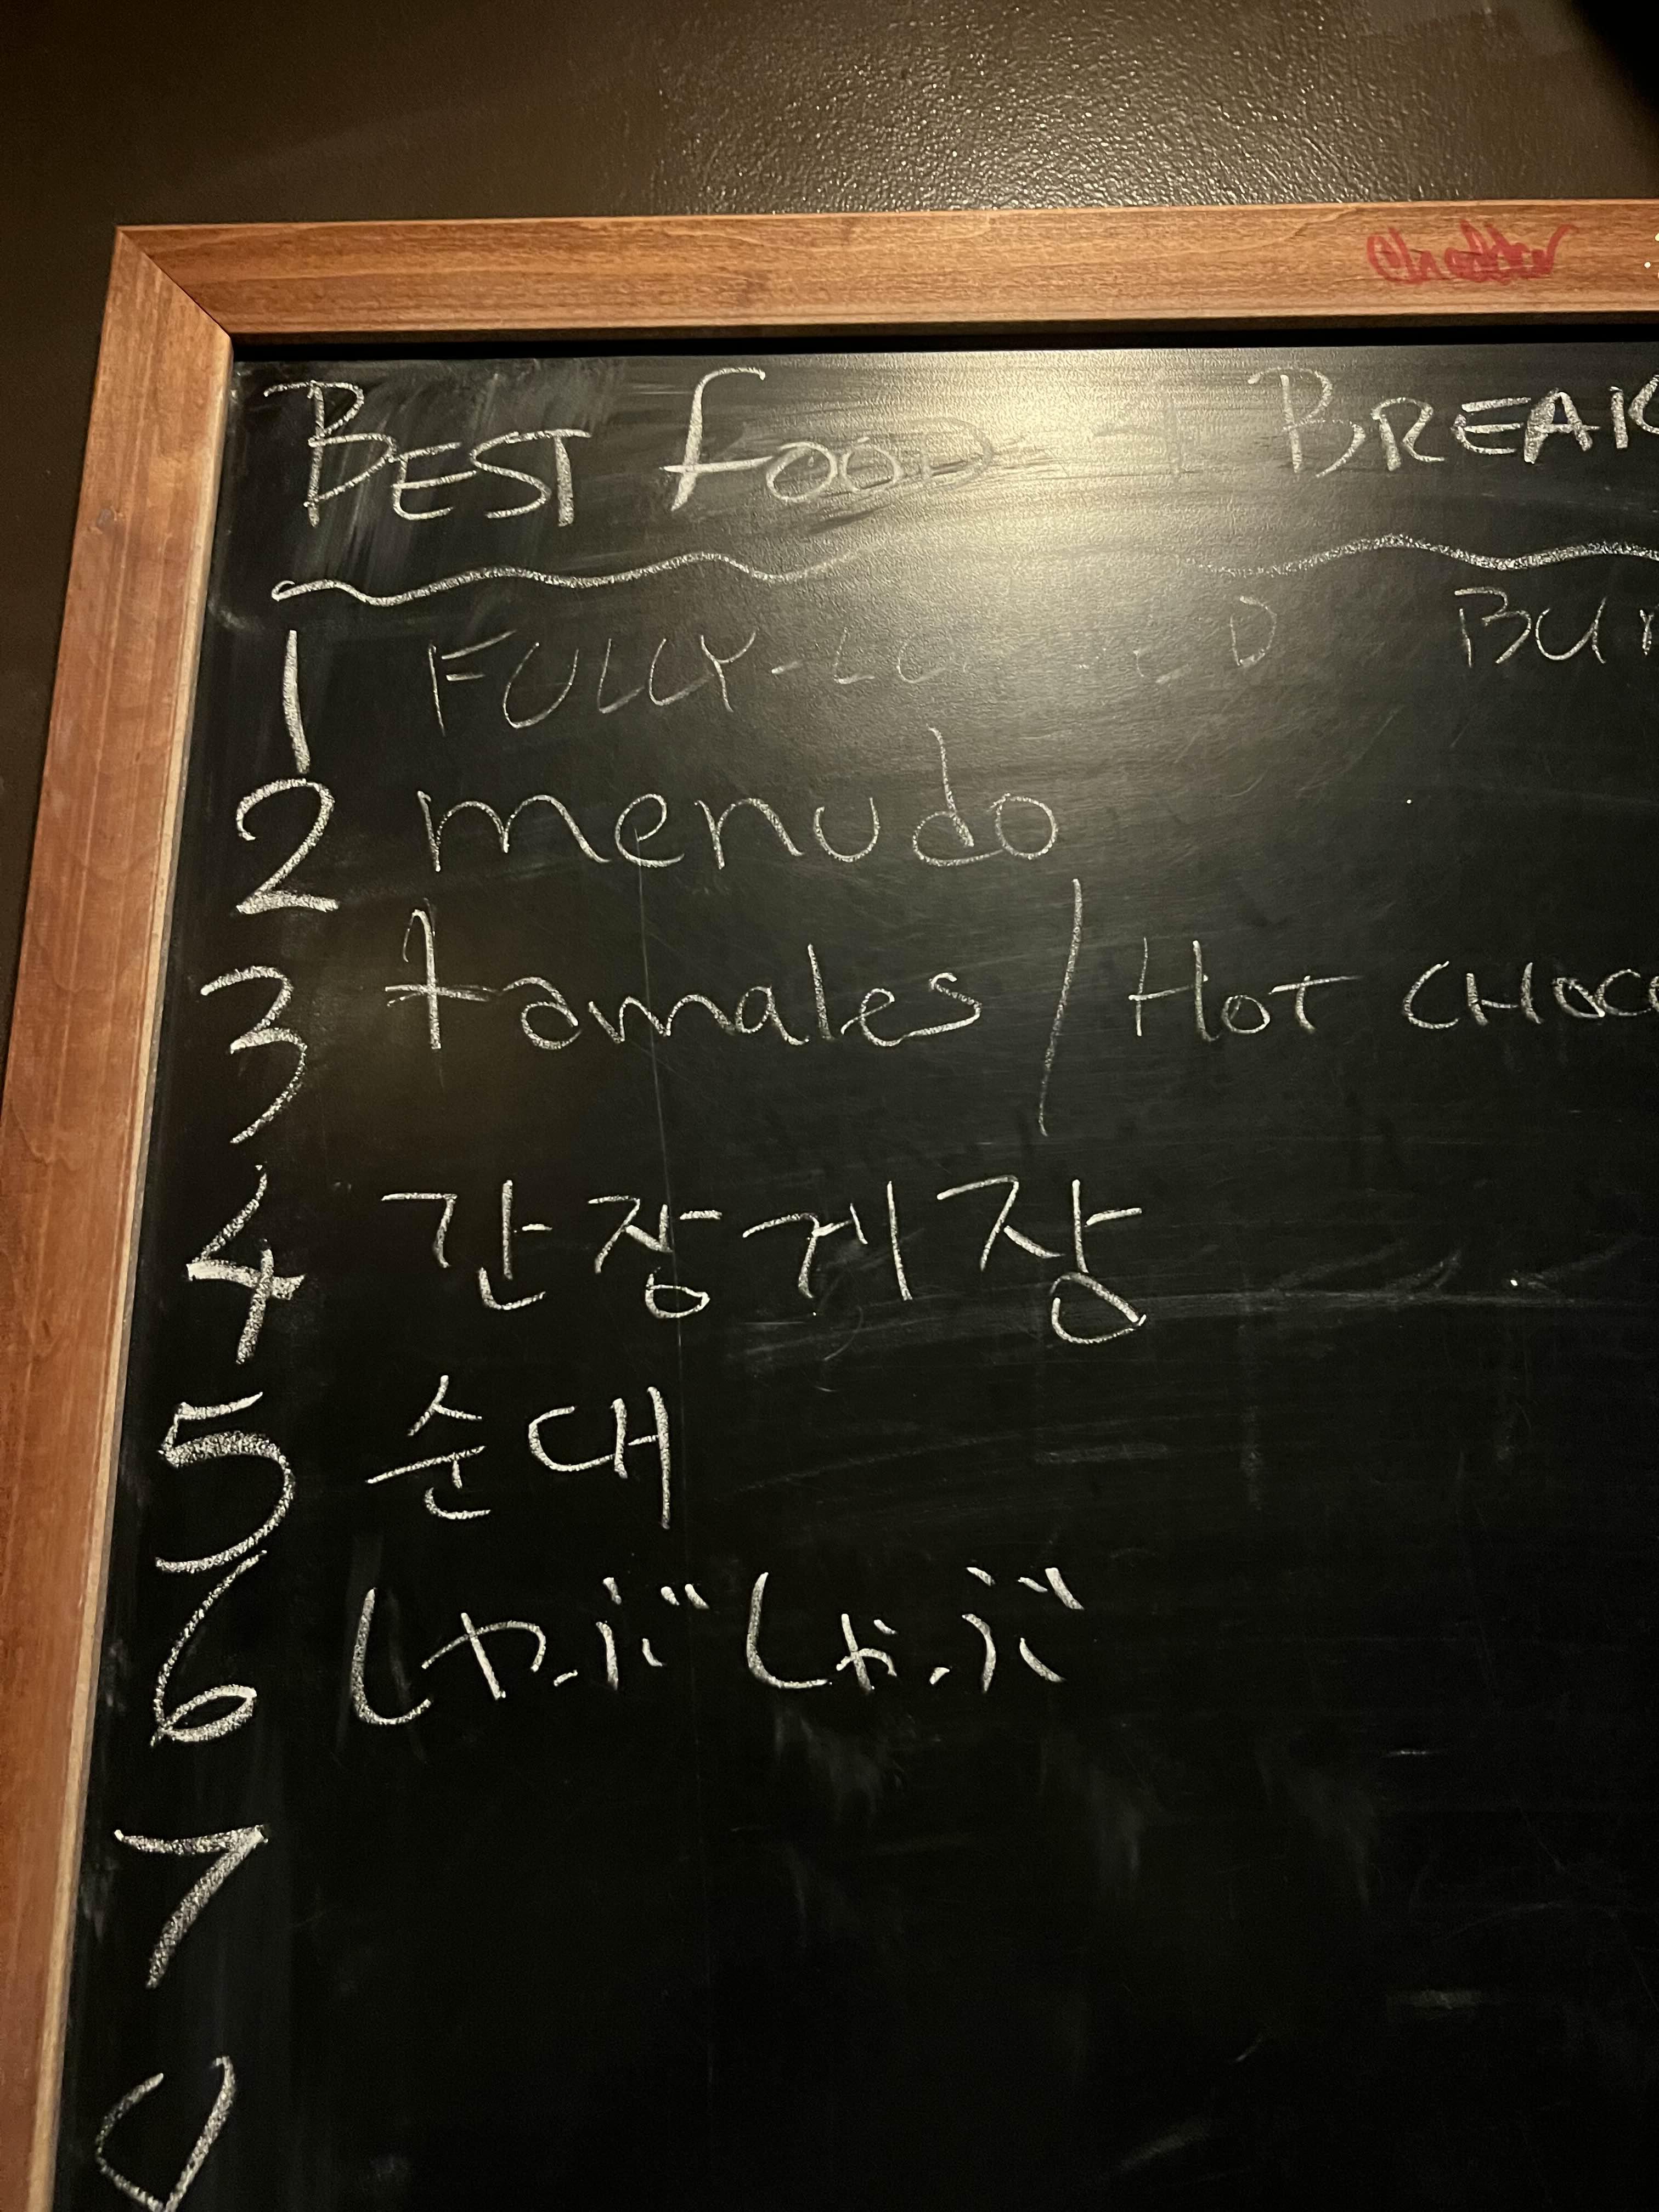 BEST FOOD BREAK
1 FULLY-LOADED BUR
2 menudo
3 tamales / HOT CHOCO
4 간장게장
5 순대
6 しゃぶしゃぶ
7